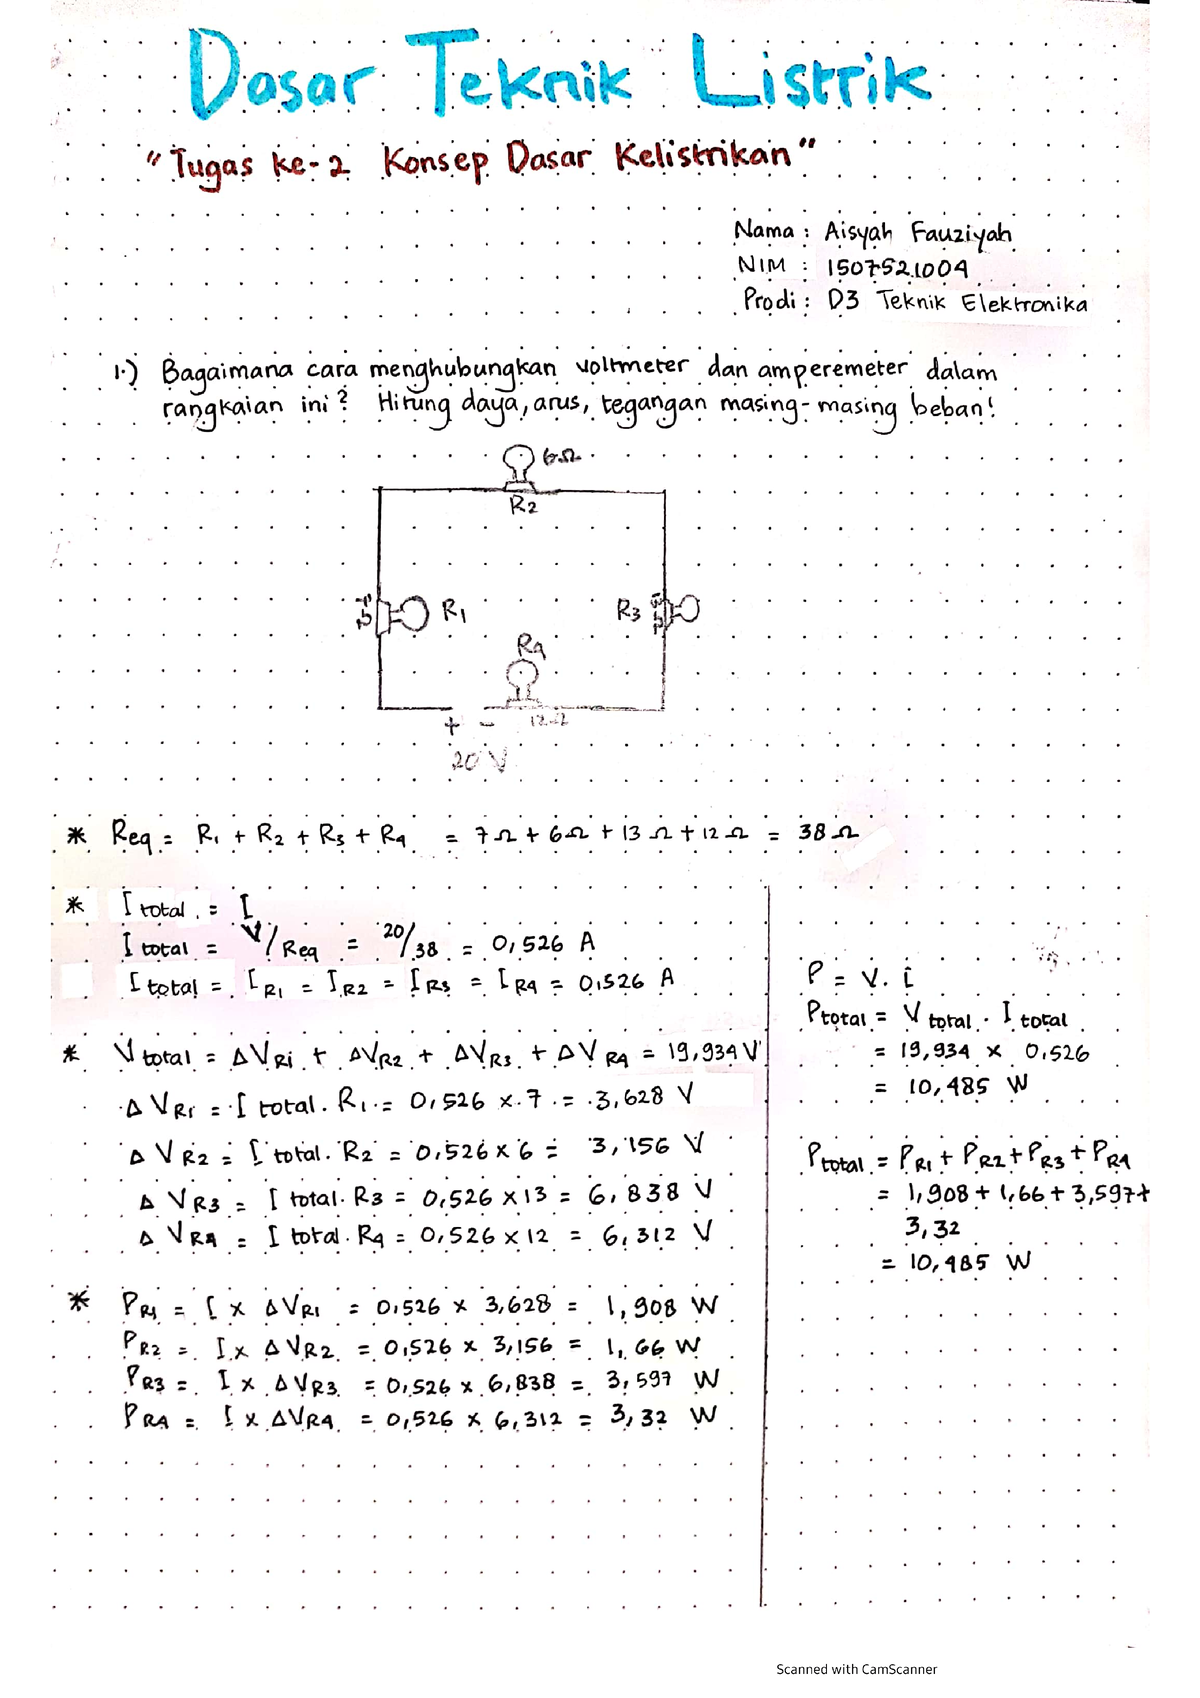 Dasar Teknik Listrik
"Tugas ke-2 Konsep Dasar Kelistrikan"
Nama : Aisyah Fauziyah
NIM : 1507521004
Prodi : D3 Teknik Elektronika
1.) Bagaimana cara menghubungkan voltmeter dan amperemeter dalam
rangkaian ini? Hitung daya, arus, tegangan masing-masing beban!
6Ω
R2
R1
R3
R4
+ - 12Ω
20 V
* Req = R1 + R2 + R3 + R4 = 7Ω + 6Ω + 13Ω + 12Ω = 38Ω
* I total = I
I total = V/Req = 20/38 = 0,526 A
I total = IR1 = IR2 = IR3 = IR4 = 0,526 A
* V total = ΔVR1 + ΔVR2 + ΔVR3 + ΔVR4 = 19,934 V
ΔVR1 = I total. R1 = 0,526 x 7 = 3,628 V
ΔVR2 = I total. R2 = 0,526 x 6 = 3,156 V
ΔVR3 = I total. R3 = 0,526 x 13 = 6,838 V
ΔVR4 = I total. R4 = 0,526 x 12 = 6,312 V
* PR1 = I x ΔVR1 = 0,526 x 3,628 = 1,908 W
PR2 = I x ΔVR2 = 0,526 x 3,156 = 1,66 W
PR3 = I x ΔVR3 = 0,526 x 6,838 = 3,597 W
PR4 = I x ΔVR4 = 0,526 x 6,312 = 3,32 W
P = V. i
Ptotal = V total . I total
= 19,934 x 0,526
= 10,485 W
Ptotal = PR1 + PR2 + PR3 + PR4
= 1,908 + 1,66 + 3,597 +
3,32
= 10,485 W
Scanned with CamScanner